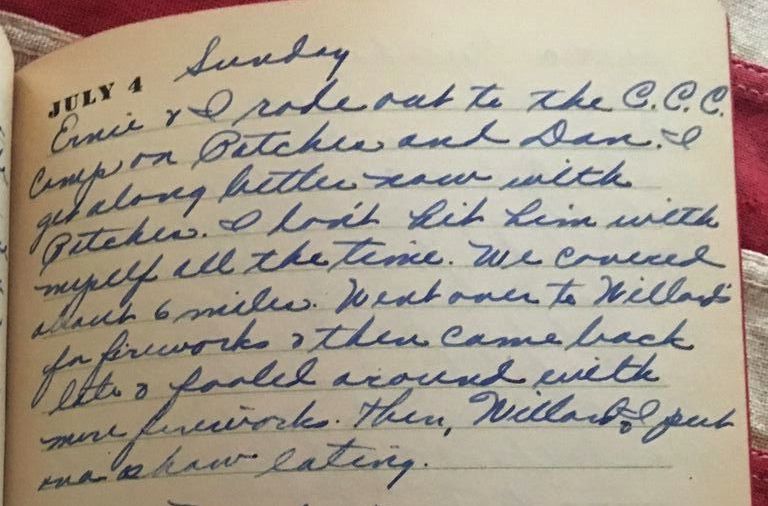 JULY 4 Sunday
Ernie & I rode out to the C.C.C.
Camp on Patches and Dan. I
get along better now with
Patches. I don't hit him with
myself all the time. We covered
about 6 miles. Went over to Willard's
for fireworks & then came back
late & fooled around with
more fireworks. Then, Willard & I put
on a show eating.